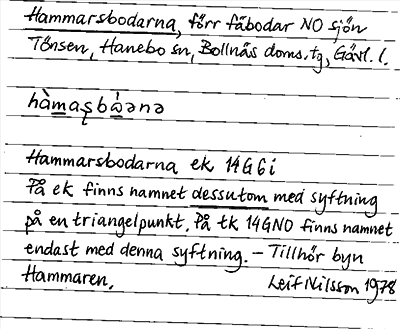 Hammarsbodarna, förr fäbodar NO sjön
Tönsen, Hanebo sn, Bollnäs doms.tg, Gävl. l.
hàmaʂbὰənə
Hammarsbodarna ek 14G6i
På ek finns namnet dessutom med syftning
på en triangelpunkt. På tk 14GNO finns namnet
endast med denna syftning. – Tillhör byn
Hammaren. Leif Nilsson 1978